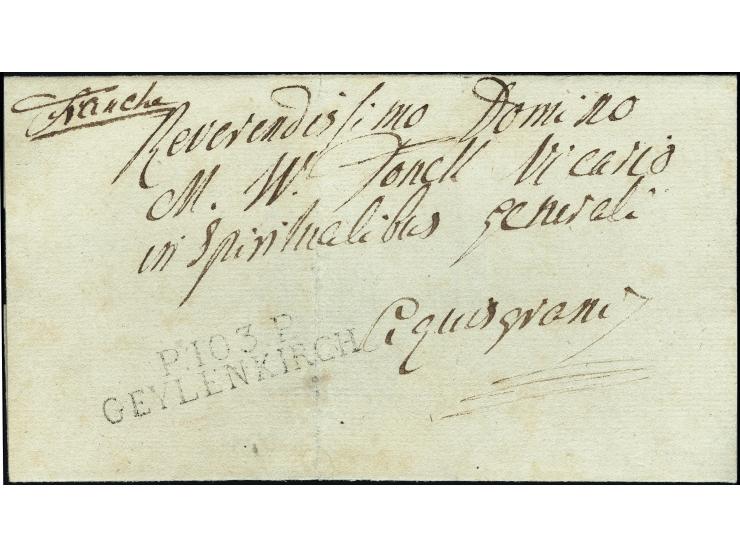 Franche
Reverendissimo Domino
M. W. Fonck Vicario
in Spiritualibus generali
Aquisgrani
P.103.P.
GEYLENKIRCH